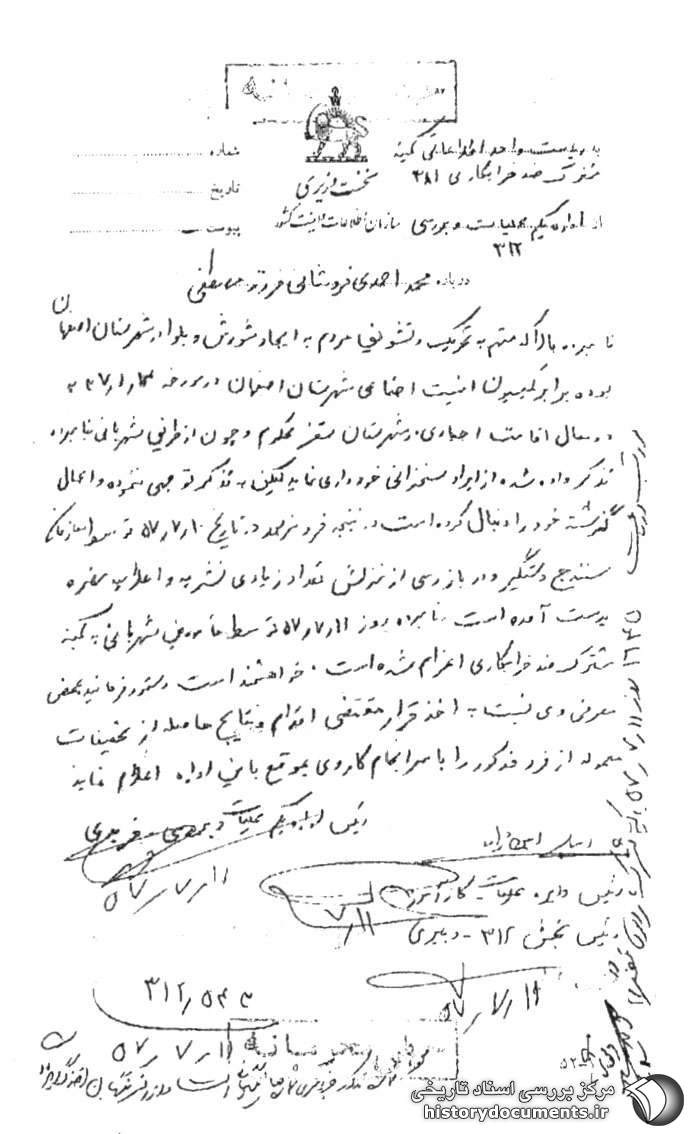 به ریاست واحد اطلاعاتی کمیته
مشترک ضد خرابکاری ۳۸۱
نخست وزیری
شماره
تاریخ
از اداره یکم عملیات و بررسی ۳۱۲
سازمان اطلاعات و امنیت کشور
پیوست
درباره محمد احمدی فروشانی فرزند مصطفی
نامبرده بالا که متهم به تحریک و تشویق مردم به ایجاد شورش و بلوا در شهرستان اصفهان
بوده برابر کمیسیون امنیت اجتماعی شهرستان اصفهان در مورخه ۳۷ به
دو سال اقامت اجباری در شهرستان سقز محکوم و چون از طرف شهربانی بنامبرده
تذکر داده شده از ایراد سخنرانی خودداری نماید لیکن به تذکر توجهی ننموده و اعمال
گذشته خود را دنبال کرده است در نتیجه فرد مزبور در تاریخ ۱۰/۷/۵۷ توسط سازمان
سنندج دستگیر و در بازرسی از منزلش تعداد زیادی نشریه و اعلامیه مضره
بدست آمده است نامبرده روز ۱۱/۷/۵۷ توسط مأمورین شهربانی به کمیته
مشترک ضد خرابکاری اعزام شده است. خواهشمند است دستور فرمائید بمحض
معرفی وی نسبت به اخذ قرار مقتضی اقدام و نتایج حاصله از تحقیقات
معموله از فرد مذکور را با سرانجام کار وی بموقع باین اداره اعلام نماید
رئیس اداره یکم عملیات و بررسی
۱۱/۷/۵۷
رئیس دایره عملیات - کارآموز
۱۱/۷
رئیس بخش ۳۱۲ - دبیری
۱۱/۷/۵۷
۳۱۲/۵۴۳
۱۱/۷/۵۷
مرکز بررسی اسناد تاریخی
historydocuments.ir